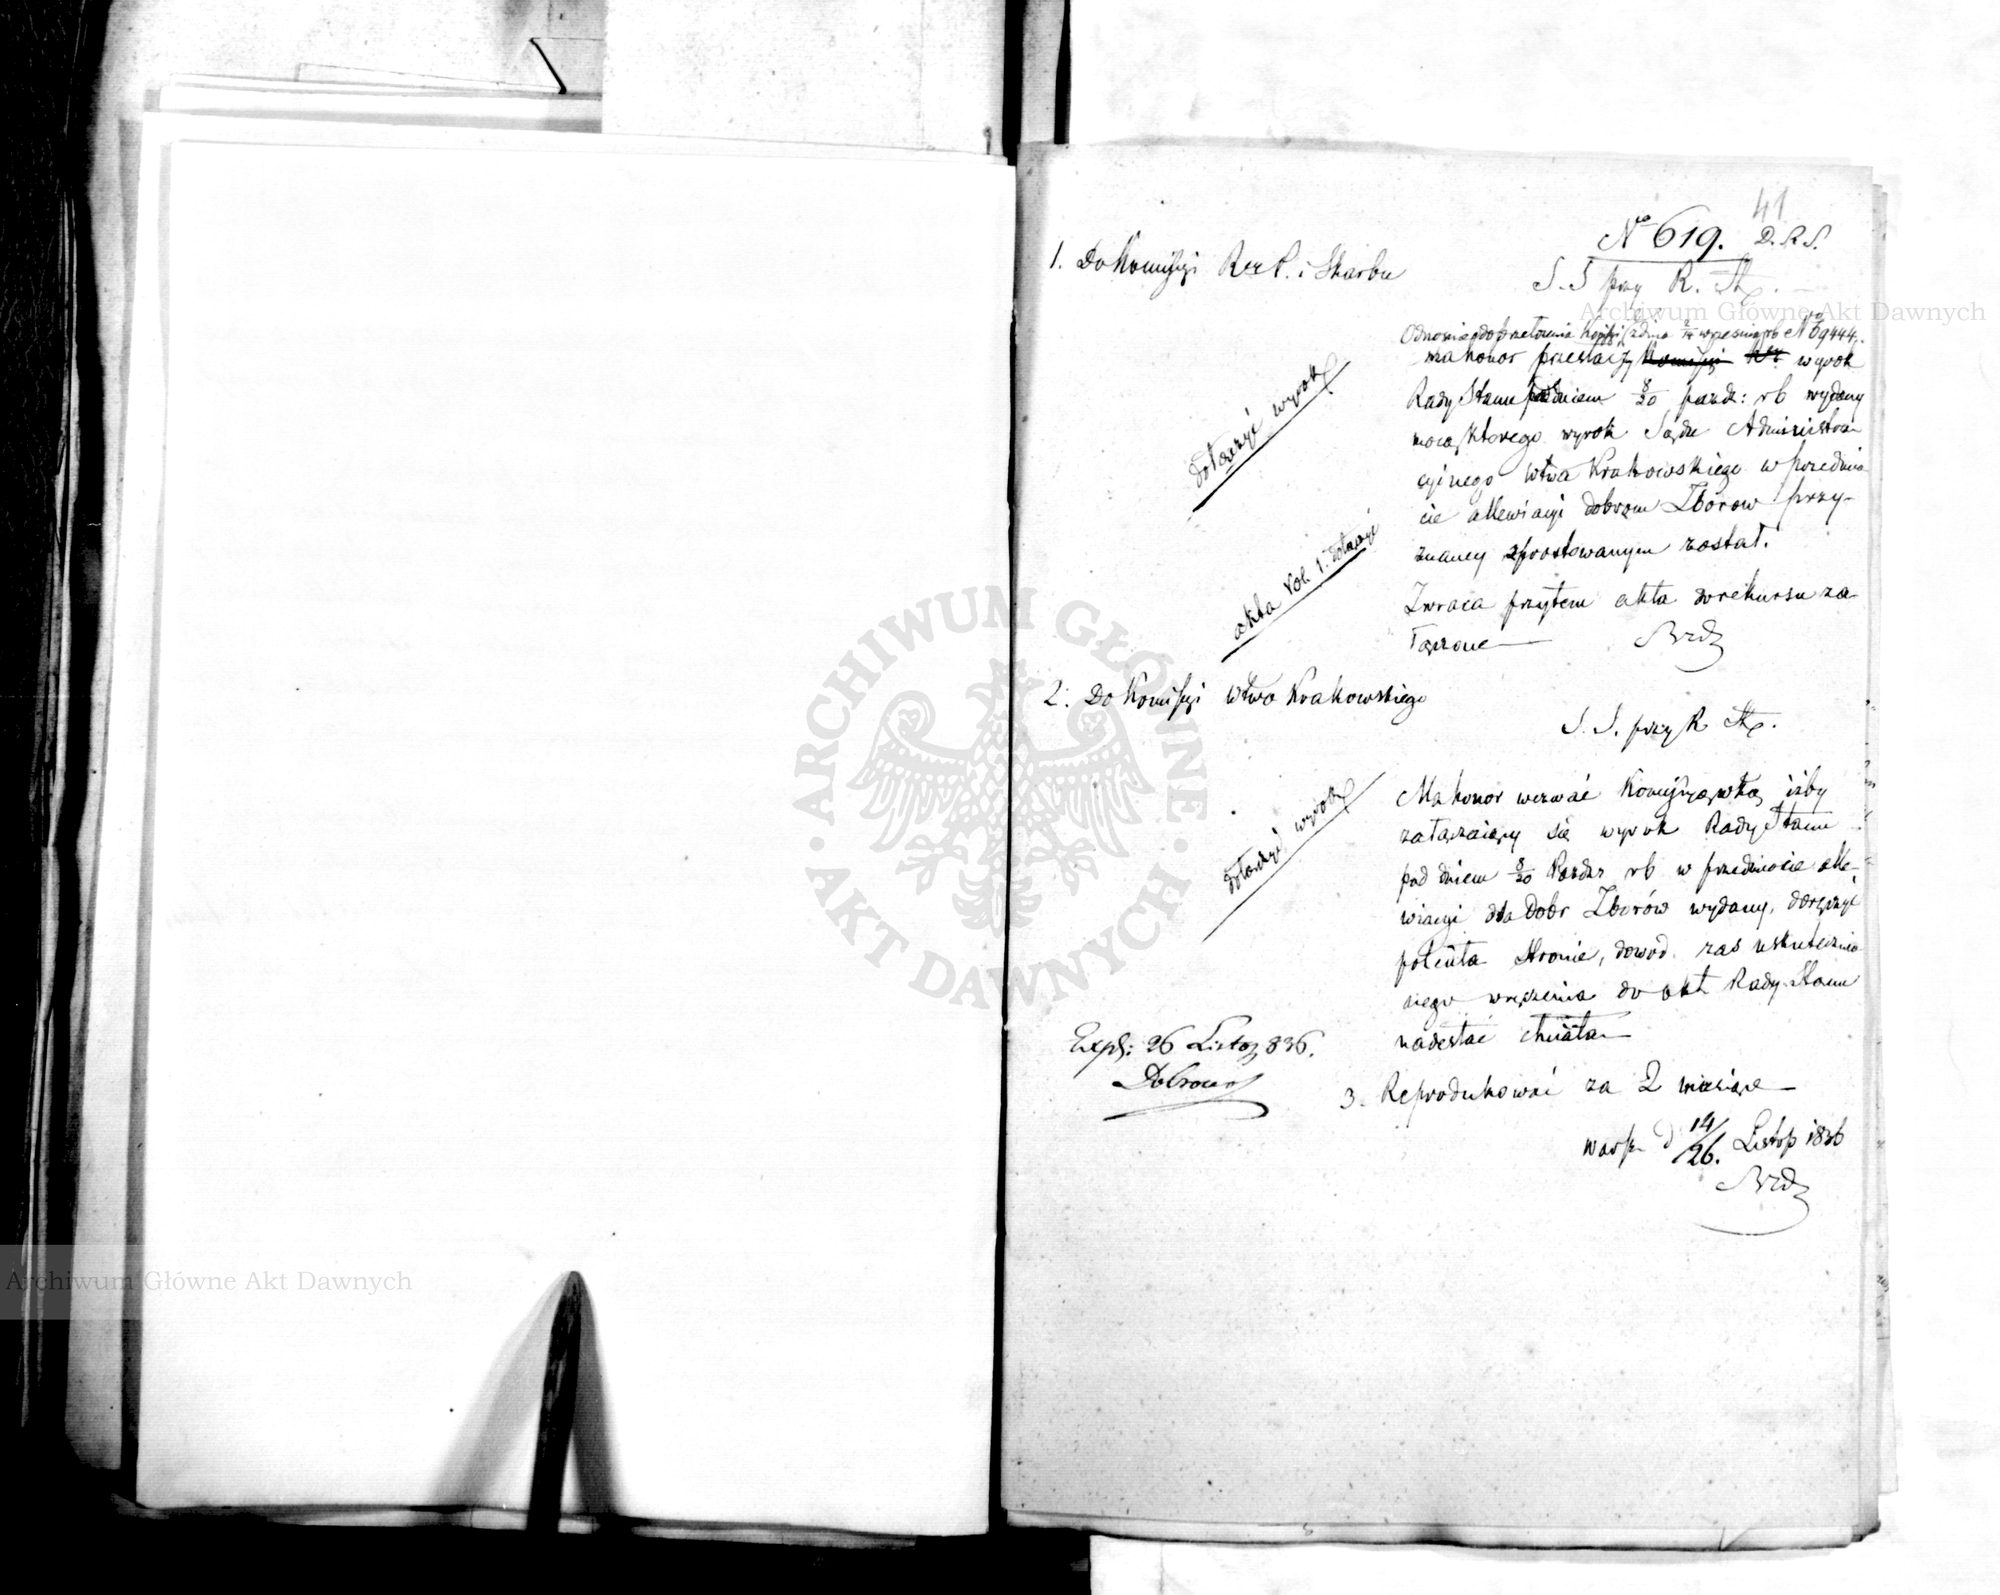 41
Nro 619. D.R.S.
1. Do Komissyi Rz P. i Skarbu
S. S przy R. St.
Odnośnie do przełożenia Kom z dnia 2/14 września rb N 69444.
ma honor przesłać Komissyi wyrok
Rady Stanu pod dniem 8/20 paźdz: rb wydany
mocą którego wyrok Sądu Administra-
cyinego Wtwa Krakowskiego w przedmio
cie allewiacyi dobrom Zborow przy-
znaney sprostowanym został.
Zwraca przytem akta do rekursu za-
łączone
Brd
dołączyć wyrok
akta Vol. 1. dołączyć
2. Do Komissyi Wtwa Krakowskiego
S. S. przy R St.
Ma honor wezwać Kommissyą Wką iżby
załączaiący się wyrok Rady Stanu
pod dniem 8/20 Paźdz rb w przedmiocie alle-
wiacyi dla Dobr Zborów wydany, doręczyć
poleciła stronie, dowod zaś uskutecznio
nego wręczenia do akt Rady Stanu
nadesłać chciała
dołączyć wyrok
Exp: 26 Listop 836.
3. Reprodukować za 2 miesiące
Warsz d 14/26. Listop 1836
Brd
Archiwum Główne Akt Dawnych
Archiwum Główne Akt Dawnych
ARCHIWUM GŁÓWNE · AKT DAWNYCH ·